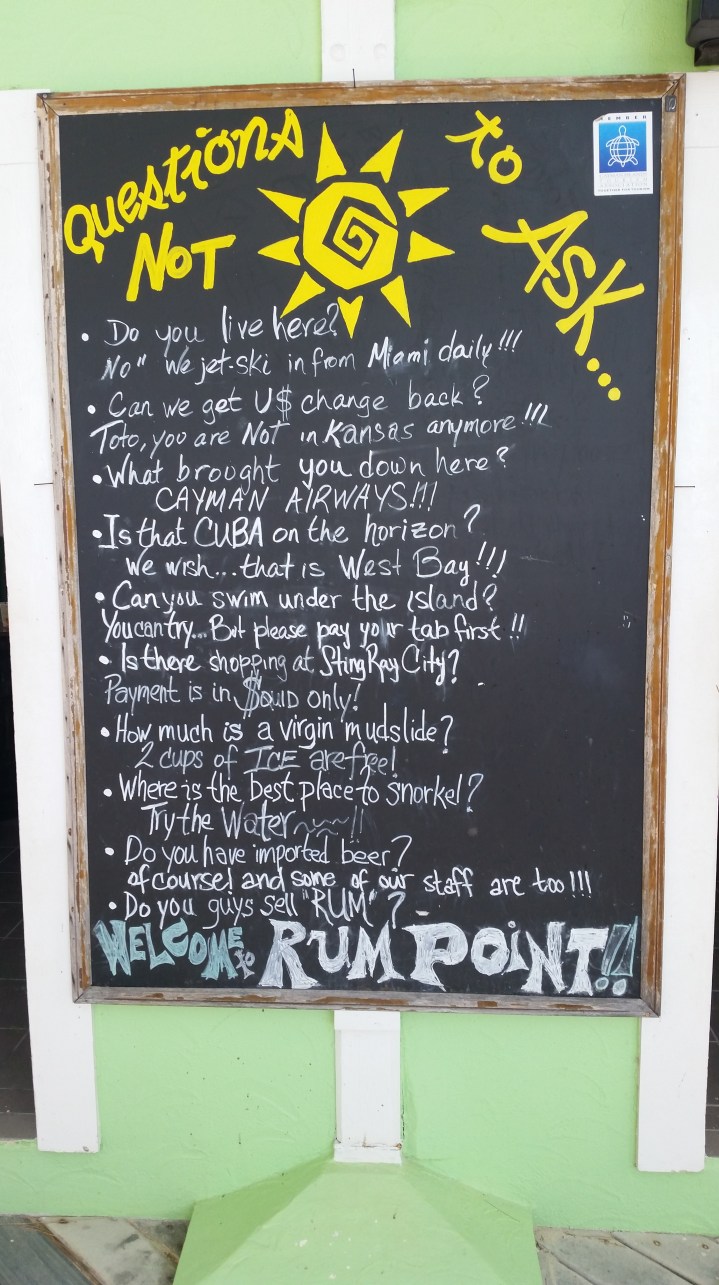 Questions Not to Ask...
• Do you live here?
No" We jet-ski in from Miami daily!!!
• Can we get U$ change back?
Toto, you are Not in Kansas anymore!!!
• What brought you down here?
CAYMAN AIRWAYS!!!
• Is that CUBA on the horizon?
We wish...that is West Bay!!!
• Can you swim under the island?
You can try... But please pay your tab first!!
• Is there shopping at StingRay City?
Payment is in $quid only!
• How much is a virgin mudslide?
2 cups of ICE are free!
• Where is the best place to snorkel?
Try the Water~~~!!
• Do you have imported beer?
of course! and some of our staff are too!!!
• Do you guys sell "RUM"?
WELCOME to RUM POINT!!
MEMBER